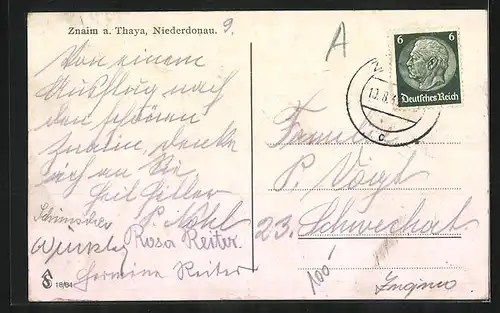 Znaim a. Thaya, Niederdonau. 9.
Von einem
Ausflug nach
den schönen
Znaim, denke
ich an Sie
Heil Hitler
P. Nohl
Rosa Reiter.
Hermine Reiter
18/64
A
6 6
Deutsches Reich
10.8.
c
Familie
P. Vogt
23. Schwechat.
100